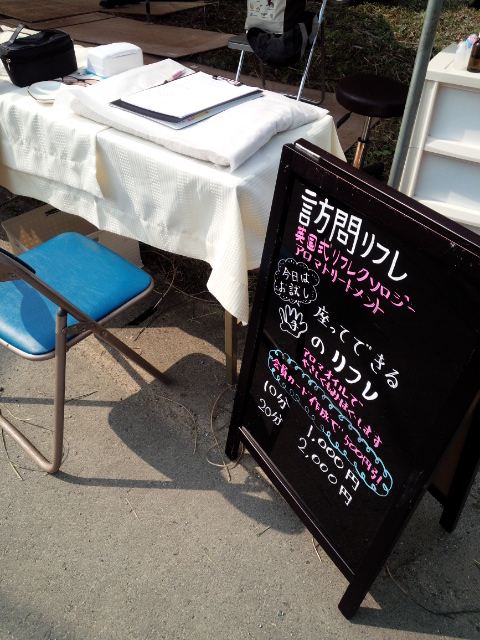 訪問リフレ
英国式リフレクソロジー
アロマトリートメント
今日は
お試し
座ってできる
のリフレ
アロマオイルで
やさしくもみほぐします
会員カード作成で、500円引
10分 1,000円
20分 2,000円